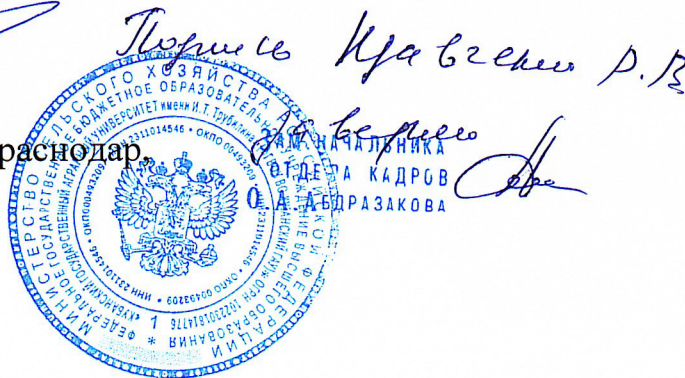 Подпись Кравченко Р.В.
заверяю
раснодар,
ЗАМ. НАЧАЛЬНИКА
ОТДЕЛА КАДРОВ
О.А. АБДРАЗАКОВА
МИНИСТЕРСТВО СЕЛЬСКОГО ХОЗЯЙСТВА РОССИЙСКОЙ ФЕДЕРАЦИИ
ФЕДЕРАЛЬНОЕ ГОСУДАРСТВЕННОЕ БЮДЖЕТНОЕ ОБРАЗОВАТЕЛЬНОЕ УЧРЕЖДЕНИЕ ВЫСШЕГО ОБРАЗОВАНИЯ * 1
«КУБАНСКИЙ ГОСУДАРСТВЕННЫЙ АГРАРНЫЙ УНИВЕРСИТЕТ имени И.Т. Трубилина» ОГРН 1022301814776
ИНН 2311014546 • ОКПО 00493209